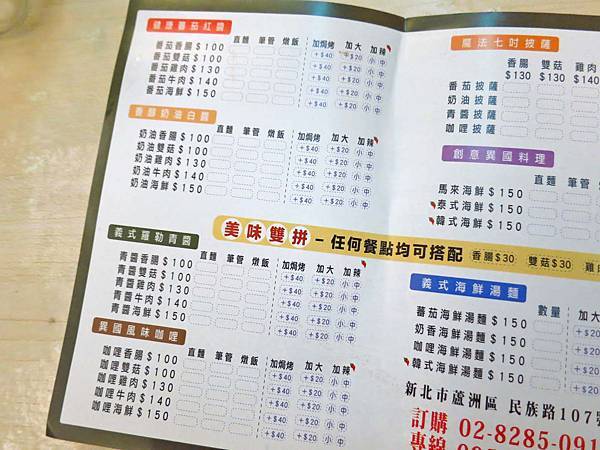 健康蕃茄紅醬 直麵 筆管 燉飯 加焗烤 加大 加辣
番茄香腸$100 +$40 +$20 小 中
番茄雙菇$100 +$40 +$20 小 中
番茄雞肉$130 +$40 +$20 小 中
番茄牛肉$140 +$40 +$20 小 中
番茄海鮮$150 +$40 +$20 小 中
香醇奶油白醬 直麵 筆管 燉飯 加焗烤 加大 加辣
奶油香腸$100 +$40 +$20 小 中
奶油雙菇$100 +$40 +$20 小 中
奶油雞肉$130 +$40 +$20 小 中
奶油牛肉$140 +$40 +$20 小 中
奶油海鮮$150 +$40 +$20 小 中
美味雙拼-任何餐點均可搭配 香腸$30 雙菇$30 雞肉
義式羅勒青醬 直麵 筆管 燉飯 加焗烤 加大 加辣
青醬香腸$100 +$40 +$20 小 中
青醬雙菇$100 +$40 +$20 小 中
青醬雞肉$130 +$40 +$20 小 中
青醬牛肉$140 +$40 +$20 小 中
青醬海鮮$150 +$40 +$20 小 中
異國風味咖哩 直麵 筆管 燉飯 加焗烤 加大 加辣
咖哩香腸$100 +$40 +$20 小 中
咖哩雙菇$100 +$40 +$20 小 中
咖哩雞肉$130 +$40 +$20 小 中
咖哩牛肉$140 +$40 +$20 小 中
咖哩海鮮$150 +$40 +$20 小 中
魔法七吋披薩
香腸 雙菇 雞肉
$130 $130 $140
番茄披薩
奶油披薩
青醬披薩
咖哩披薩
創意異國料理
直麵 筆管
馬來海鮮$150
泰式海鮮$150
韓式海鮮$150
義式海鮮湯麵 數量 加大
蕃茄海鮮湯麵$150 +$20
奶香海鮮湯麵$150 +$20
咖哩海鮮湯麵$150 +$20
韓式海鮮湯麵$150 +$20
新北市蘆洲區 民族路107號
訂購 02-8285-091
專線